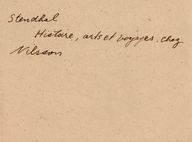 Stendhal
Histoire, arts et voyages, chez
Nilsson